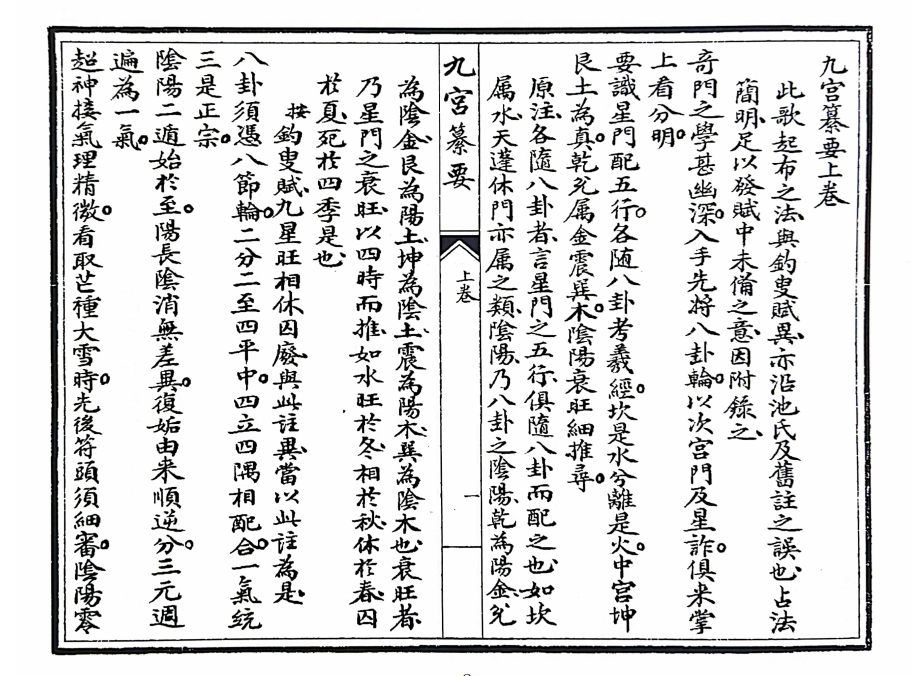 九宮纂要上卷
此歌起布之法與釣叟賦異亦沿池氏及舊註之誤也占法
簡明足以發賦中未備之意因附錄之
奇門之學甚幽深入手先將八卦輪以次宮門及星詐俱來掌
上看分明
要識星門配五行各随八卦考羲經坎是水兮離是火中宮坤
艮土為真乾兊属金震巽木陰陽衰旺細推尋
原注各隨八卦者言星門之五行俱隨八卦而配之也如坎
属水天蓬休門亦属之類陰陽乃八卦之陰陽乾為陽金兊
九宮纂要
上卷
一
為陰金艮為陽土坤為陰土震為陽木巽為陰木也衰旺者
乃星門之衰旺以四時而推如水旺於冬相於秋休於春囚
於夏死於四季是也
按釣叟賦九星旺相休囚廢與此註異當以此註為是
八卦須憑八節輪二分二至四平中四立四隅相配合一氣統
三是正宗
陰陽二遁始於至陽長陰消無差異復姤由来順逆分三元週
遍為一氣
超神接氣理精微看取芒種大雪時先後符頭須細審陰陽零